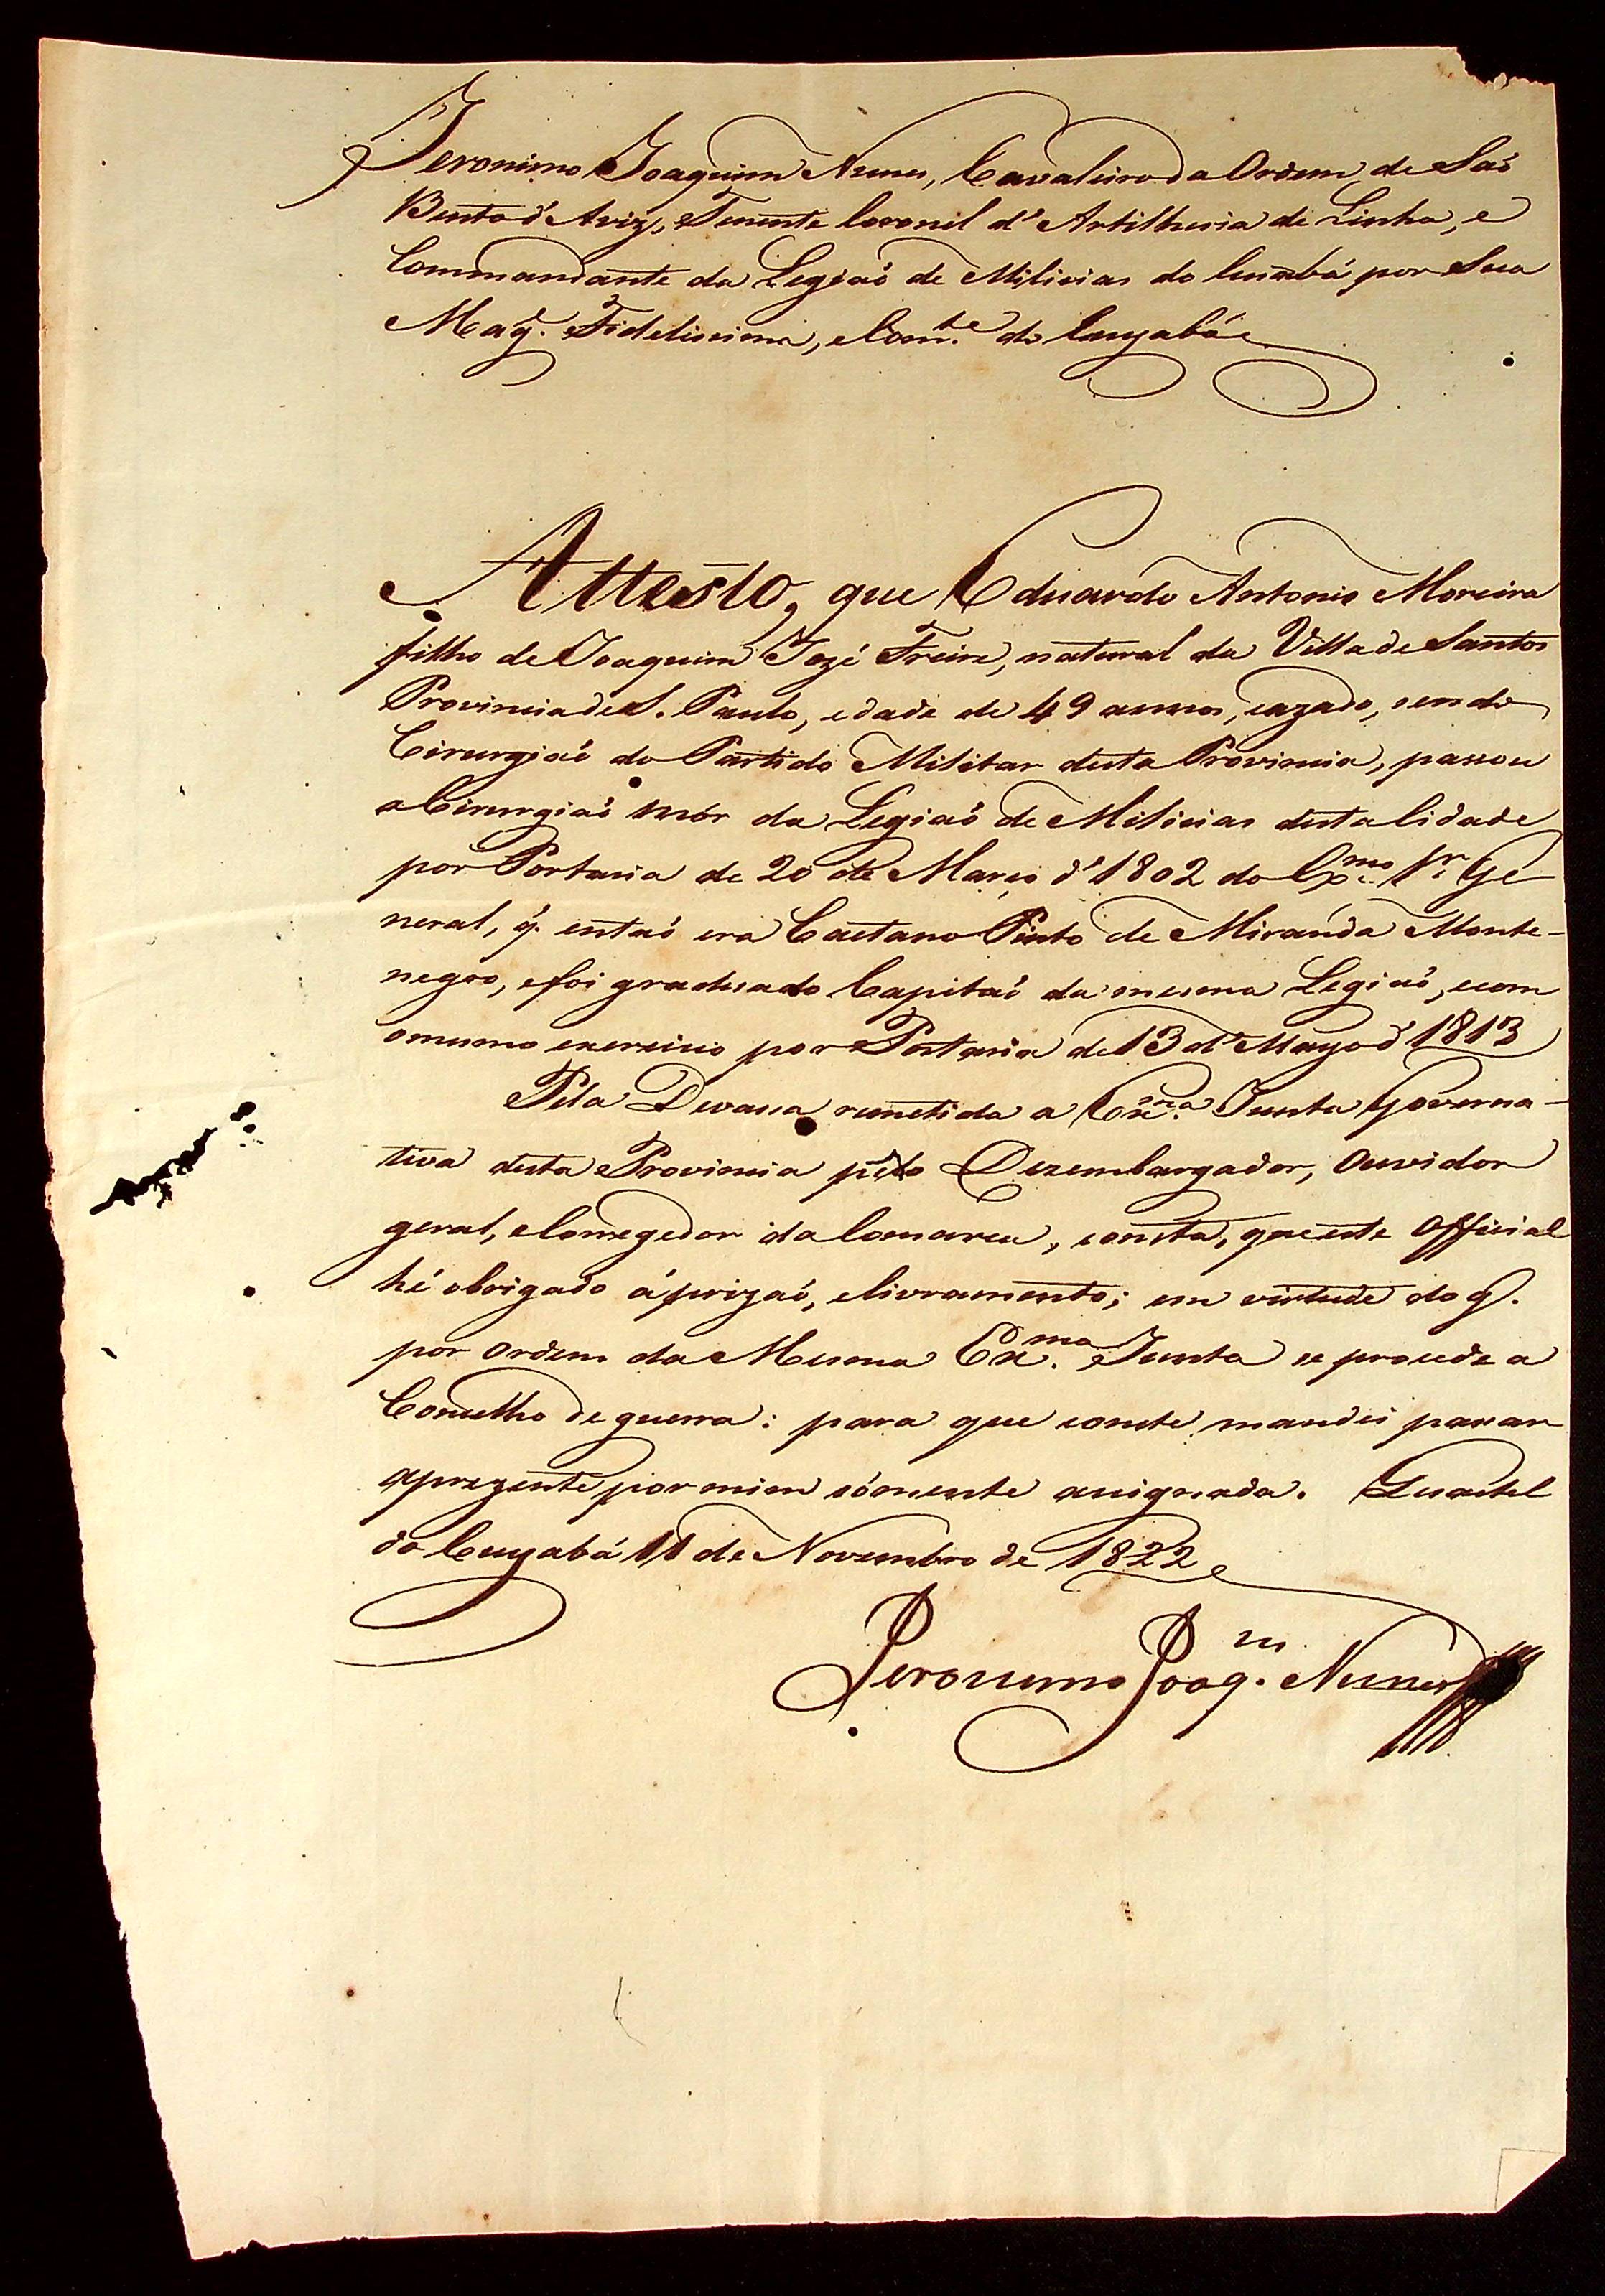 Jeronimo Joaquim Nunes, Cavaleiro da Ordem de Saõ
Bento d'Aviz, Tenente Coronel d'Artilheria de Linha, e
Commandante da Legiaõ de Milicias do Cuiabá por Sua
Mag.e Fidelissima, e Com.te do Cuyabá
Attesto, que Eduardo Antonio Moreira
filho de Joaquim Jozé Freire, natural da Villa de Santos
Provincia de S. Paulo, edade de 49 annos, cazado, sendo
Cirurgiaõ do Partido Militar desta Provincia, passou
a Cirurgiaõ mór da Legiaõ de Milicias desta Cidade
por Portaria de 20 de Março d'1802 do Ex.mo Sr. Ge-
neral, q. entaõ era Caetano Pinto de Miranda Monte-
negro, e foi graduado Capitaõ da mesma Legiaõ, e com
o mesmo exercicio por Portaria de 13 d'Mayo d'1813
Pela Devassa remetida a Ex.ma Junta Governa-
tiva desta Provincia pelo Dezembargador, Ouvidor
geral, e Corregedor da Comarca, consta, que este Official
hé obrigado á prizaõ, e livramento; em virtude do q.
por Ordem da Mesma Ex.ma Junta se procede a
Conselho de guerra: para que conste mandei passar
a prezente por mim sómente assignada. Quartel
do Cuyabá 11 de Novembro de 1822
Jeronimo Joaq.m Nunes